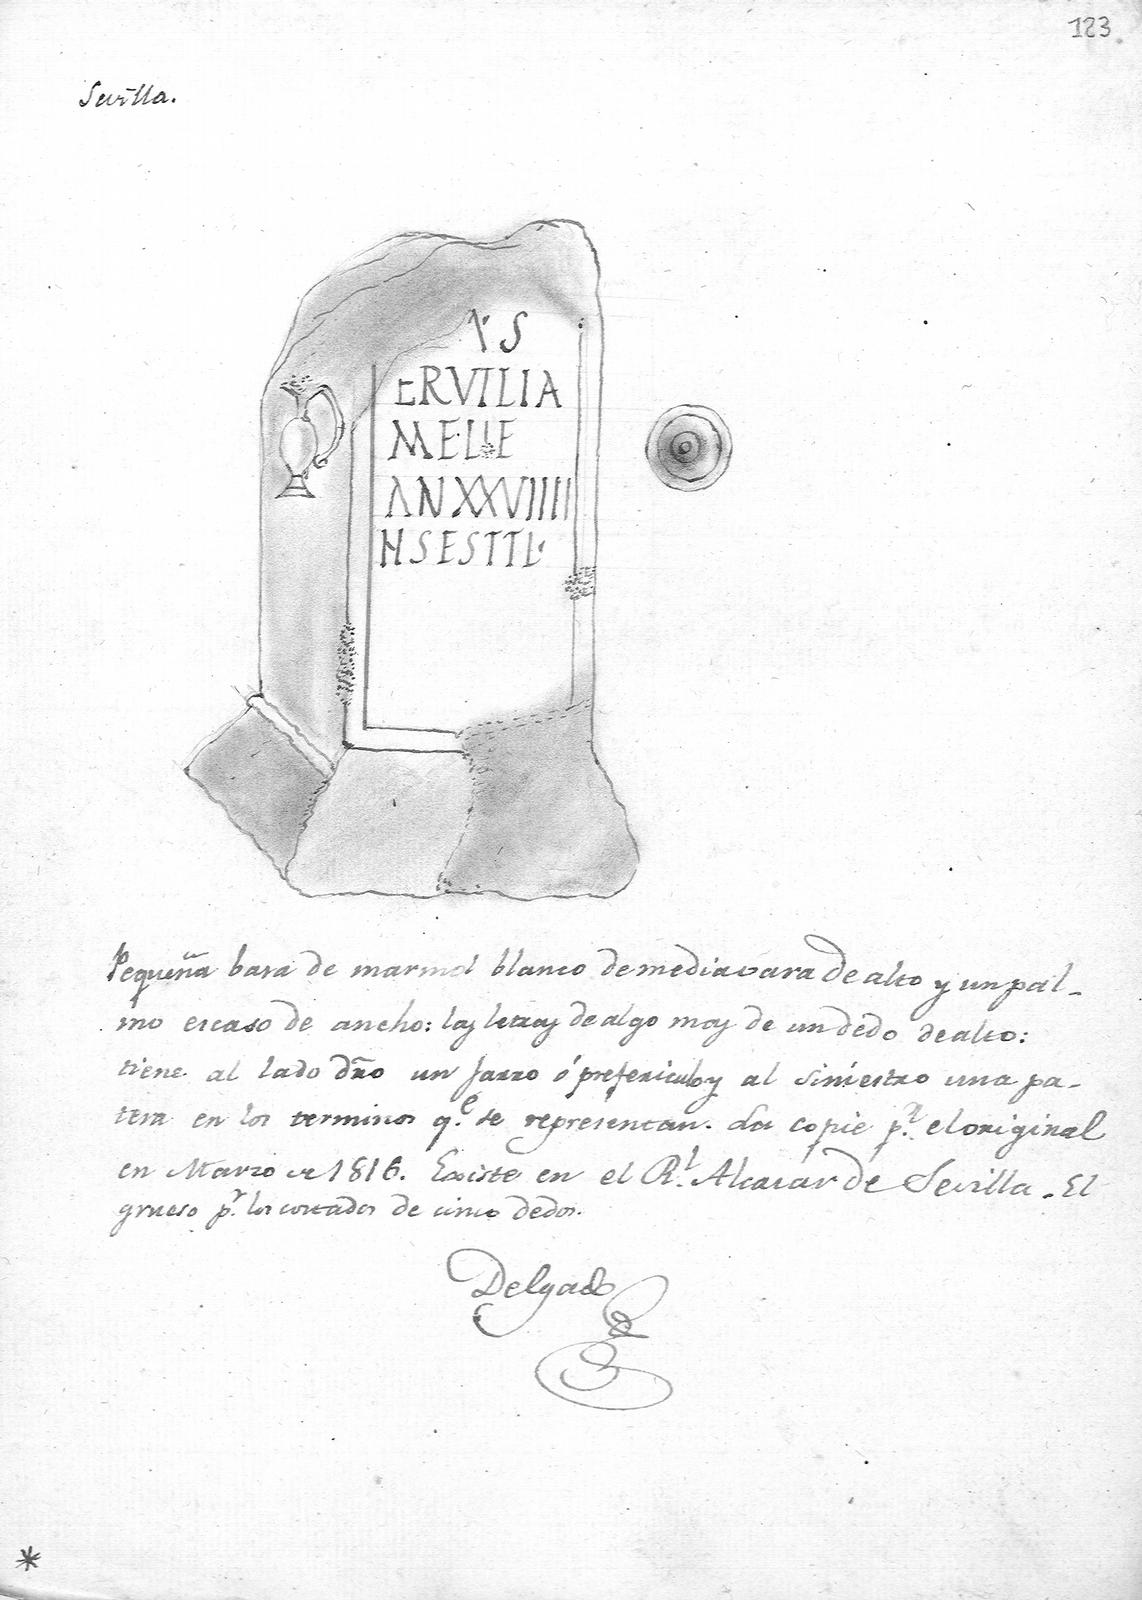 123
Sevilla.
V· S
ERVILIA
MELLE
ANXXVIIII
HSESTTL·
Pequeña basa de marmol blanco de media vara de alto y un pal-
mo escaso de ancho: las letras de algo mas de un dedo de alto:
tiene al lado dr̃o un jarro ó prefericulo y al siniestro una pa-
tera en los terminos q.e se representan. La copie p.r el original
en Marzo de 1816. Existe en el R.l Alcazar de Sevilla. El
grueso p.r los costados de cinco dedos.
Delgado